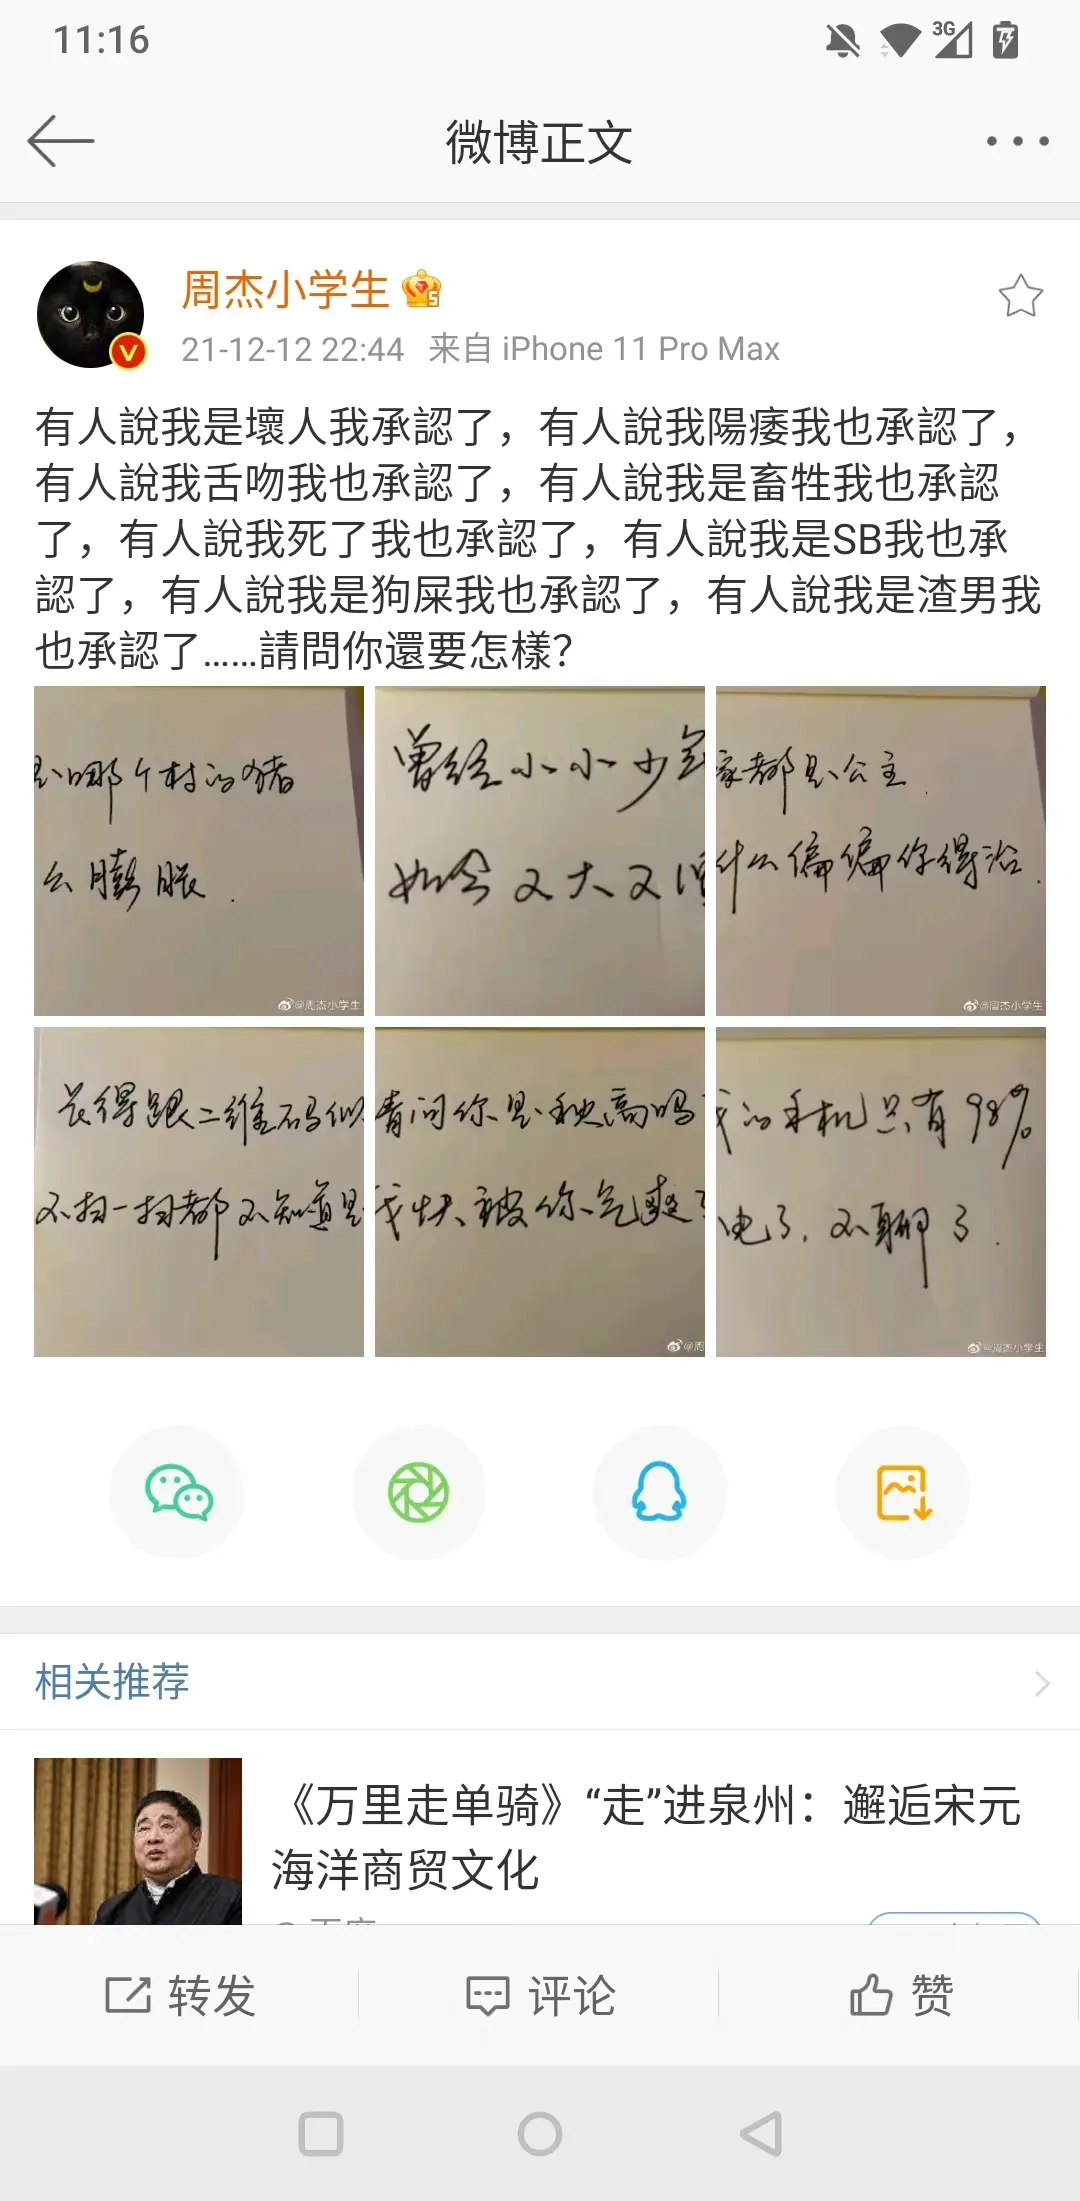 11:16
3G
微博正文
周杰小学生
21-12-12 22:44 来自 iPhone 11 Pro Max
有人說我是壞人我承認了，有人說我陽痿我也承認了，
有人說我舌吻我也承認了，有人說我是畜牲我也承認
了，有人說我死了我也承認了，有人說我是SB我也承
認了，有人說我是狗屎我也承認了，有人說我是渣男我
也承認了……請問你還要怎樣？
是哪个村的猪
么膨胀.
@周杰小学生
曾经小小少年
如今又大又
家都是公主.
什么偏偏你得治.
@周杰小学生
长得跟二维码似
不扫一扫都不知道是
请问你是秋高吗
我快被你气爽了
@周
我的手机只有98%
电了,不聊了.
@周杰小学生
相关推荐
《万里走单骑》“走”进泉州：邂逅宋元
海洋商贸文化
转发
评论
赞